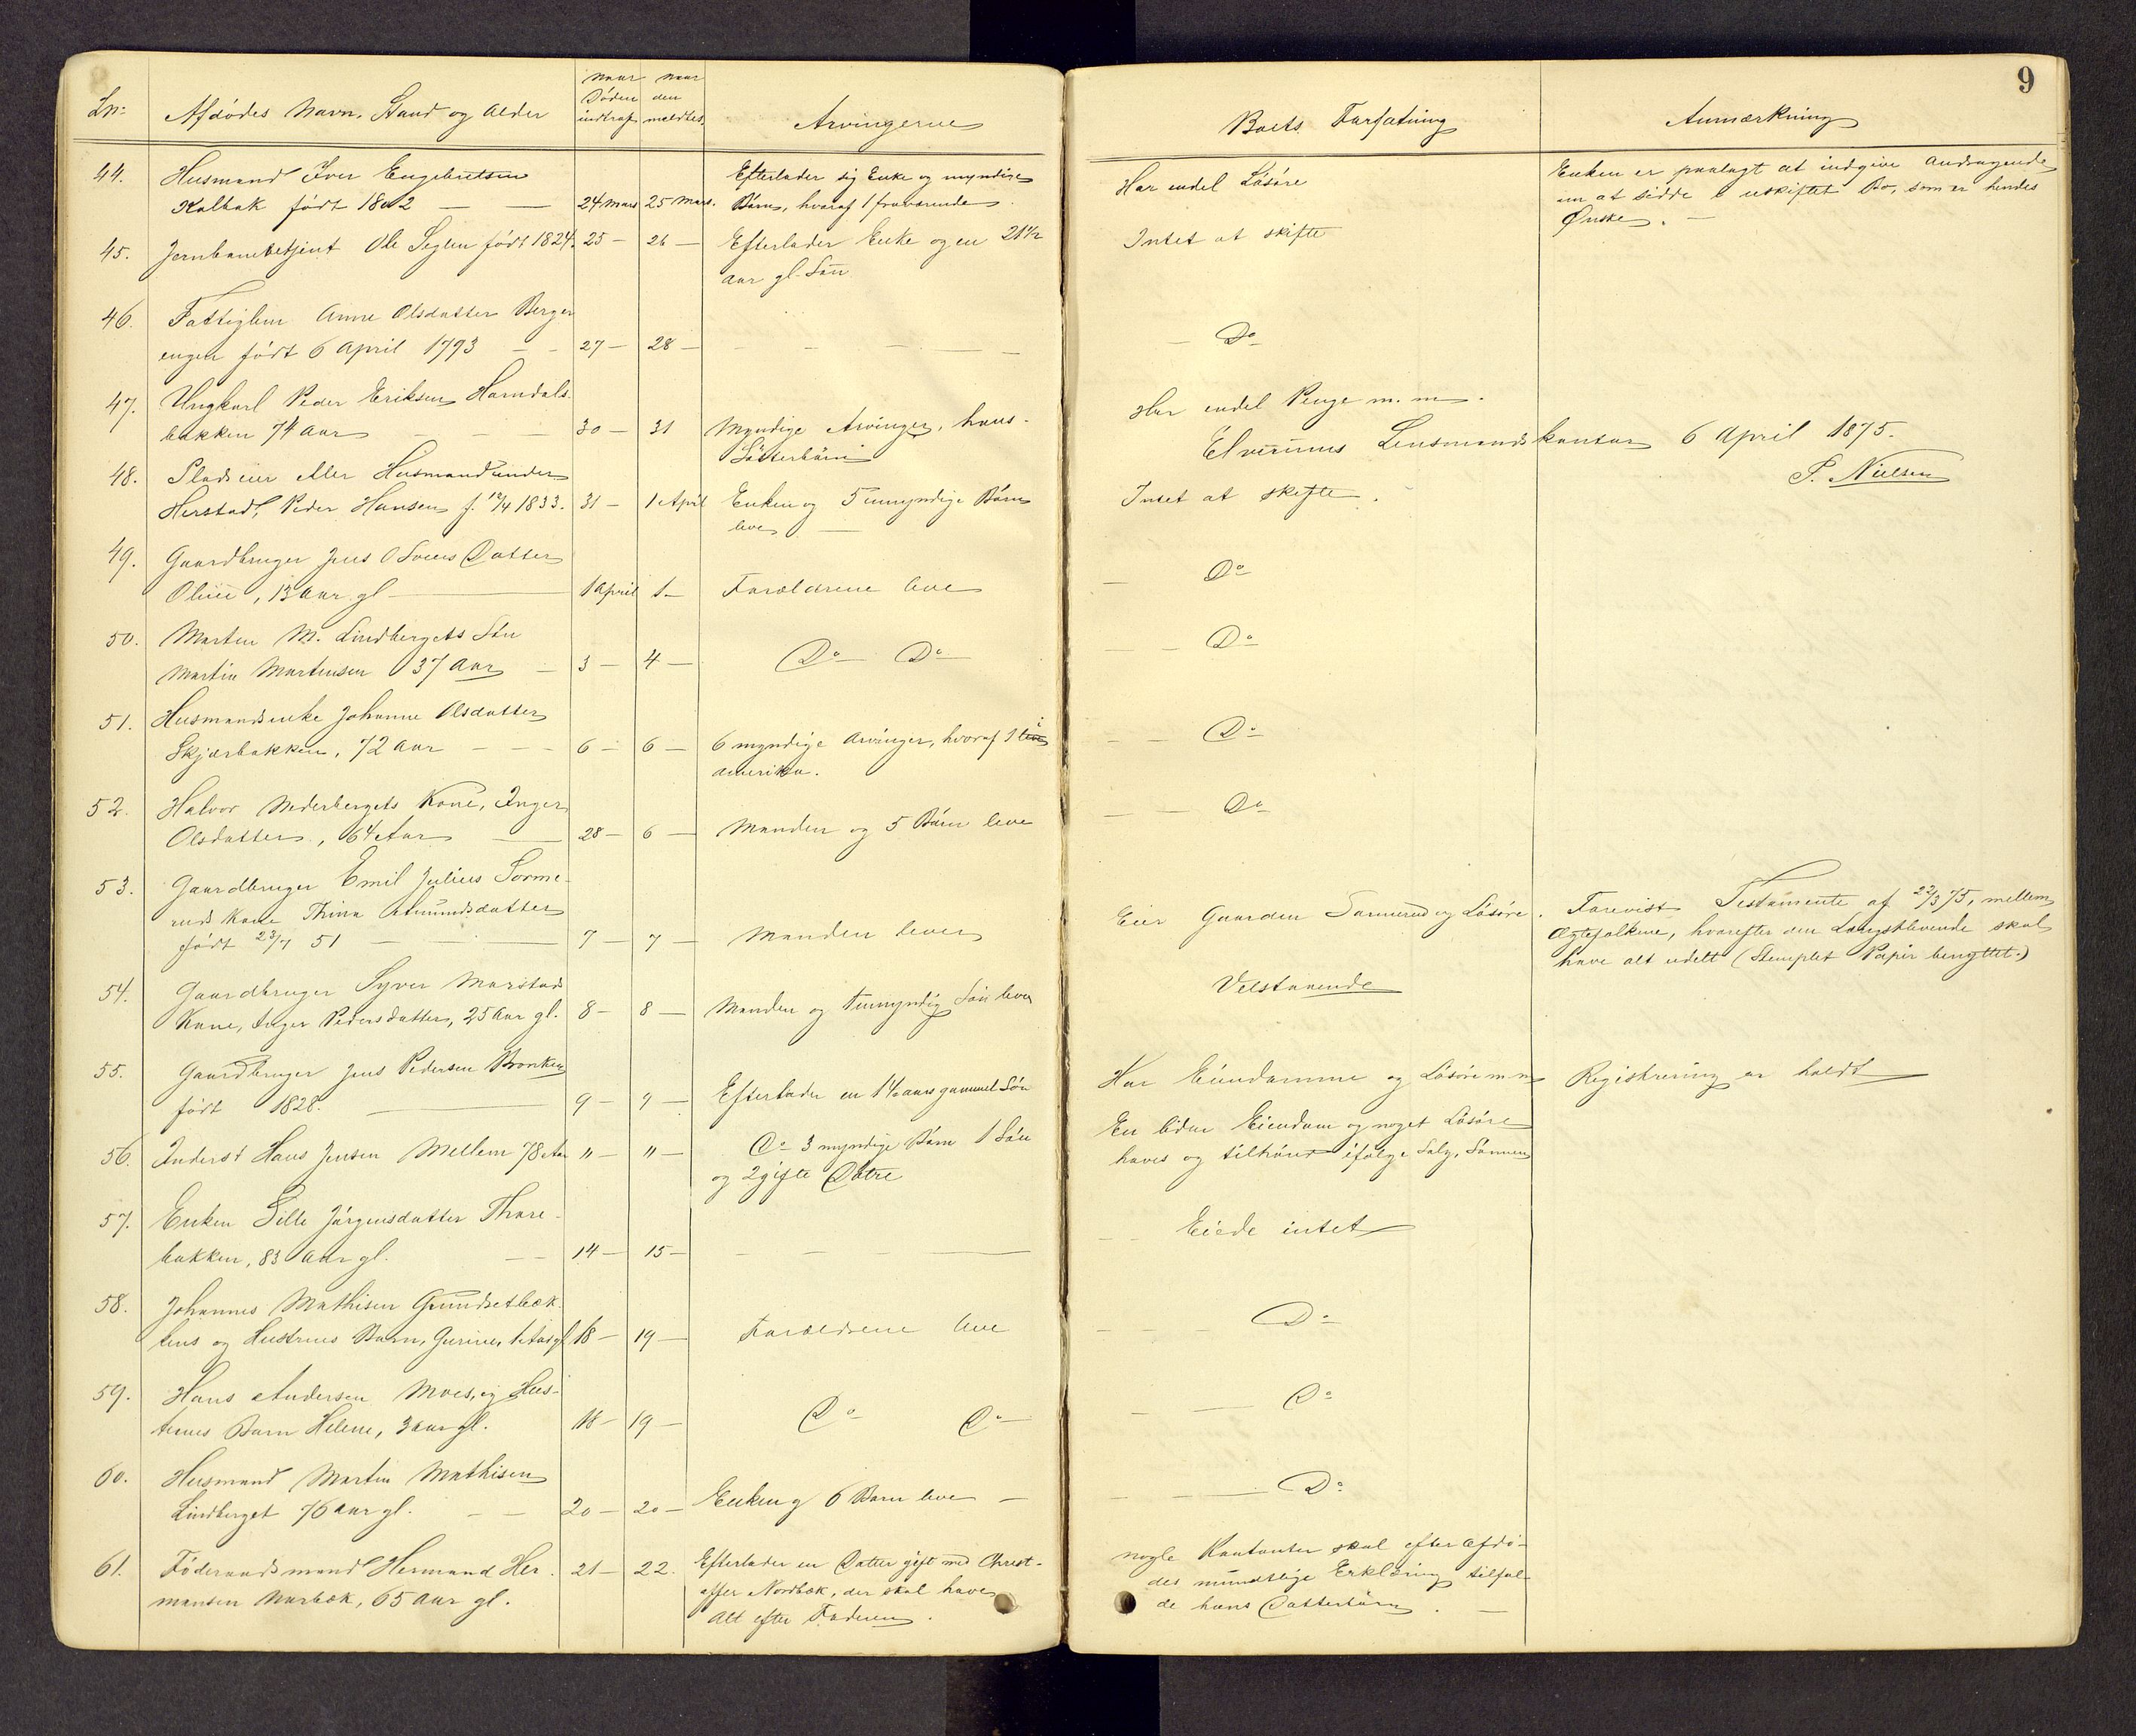 9
Ln: Afdödes Navn, Stand og Alder naar Döden indtraf naar den meldtes. Arvingerne Boets Forfatning Anmærkning
44. Husmand Iver Engebretsen
Kalbak født 1802 — — 24 Mars 25 Mars.
Efterlader sig Enke og myndige
Börn, hvoraf 1 fraværende.
Har endel Lösöre
Enken er paalagt at indgive Andragende
om at sidde i uskiftet Bo, som er hendes
Ønske. —
45. Jernbanebetjent Ole Seglen født 1824. 25 — 26 —
Efterlader Enke og en 21½
aar gl. Sön
Intet at skifte
46. Fattiglem Anne Olsdatter Berger
engen født 6 April 1793 — — 27 — 28 — — — — —
— Do
47. Ungkarl Peder Eriksen Horndals-
bakken 74 Aar — — — 30 — 31
Myndige Arvinger, hans
Sösterbörn
Har endel Penge m.m.
Elverums Lensmandskontor 6 April 1875.
P. Nielsen
48. Pladseier eller Husmand under
Herstad, Peder Hansen f. 12/4 1833. 31 — 1 April
Enken og 5 umyndige Börn
leve —
Intet at skifte.
49. Gaardbruger Jens Datter
Oline, 13 Aar gl — 1 April 1 — Forældrene leve
— Do
50. Morten M. Lindbergets Sön
Martin Mortensen 37 Aar — 3 — 4 — Do — Do —
— — Do
51. Husmandsenke Johanne Olsdatter
Skjærbakken, 72 Aar — — — 6 — 6 —
6 myndige Arvinger, hvoraf 3 i
Amerika.
— — Do
52. Halvor Nederbergets Kone, Inger
Olsdatter, 64 Aar — 28 — 6 — Manden og 5 Börn leve
— — Do
53. Gaardbruger Emil Julius Sorme-
ruds Kone Thina Amundsdatter
født 23/7 51 — — 7 — 7 — Manden lever
Eier Gaarden Sormerud og Lösöre.
Forevist Testamente af 22/3 75, mellem
Ægtefolkene, hvorefter den Længstlevende skal
have alt udelt (Stemplet Papir benyttet.)
54. Gaardbruger Syver Morstad
Kone, Inger Pedersdatter, 25 Aar gl. 8 — 8 — Manden og 1 umyndig Sön lever
Velstaaende
55. Gaardbruger Jens Pedersen Bronken
født 1828. — 9 — 9 — Efterlader en 1½ aars gammel Sön
Har Eiendomme og Lösöre m m
Registrering er holdt
56. Inderst Hans Jensen Mellem 78 Aar 11 — 11 —
Do 3 myndige Börn 1 Sön
og 2 gifte Dötre
En liden Eiendom og noget Lösöre
haves og tilhörer ifölge Salg, Sönnen
57. Enken Sille Jörgensdatter Thore-
bakken, 83 Aar gl. — — 14 — 15 — — — —
— — Eiede intet
58. Johannes Mathisen Grundsetbæk-
kens og Hustrues Barn, Gurine, 1 Aar gl 18 — 19 — Forældrene leve
— — — Do
59. Hans Andersen Moes, og Hus-
trues Barn Helene, 3 aar gl. 18 — 19 — Do Do —
— — Do
60. Husmand Martin Mathisen
Lindberget 76 Aar gl. — — 20 — 20 — Enken og 6 Barn leve —
— — Do
61. Föderaadsmand Hermand Her-
mansen Norbæk, 65 Aar gl. 21 — 22.
Efterlader en Datter gift med Christ-
offer Nordbæk, der skal have
Alt efter Faderen.
nogle Kontanter skal efter Afdö-
des mundtlige Erklæring tilfal-
de hans Datterbörn. —